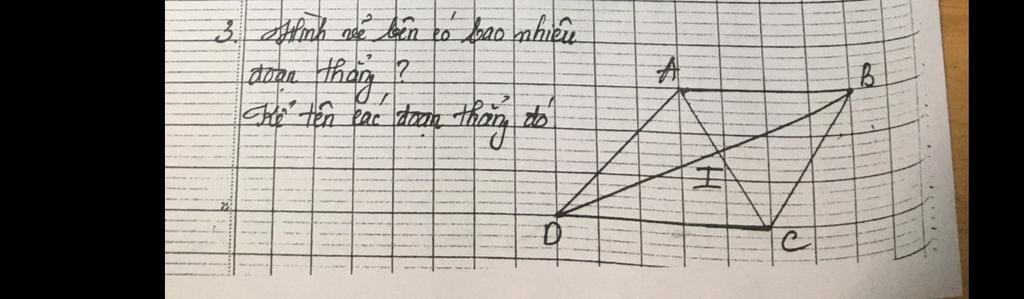 3. Hình vẽ bên có bao nhiêu
đoạn thẳng?
Kể tên các đoạn thẳng đó
A
B
I
D
C